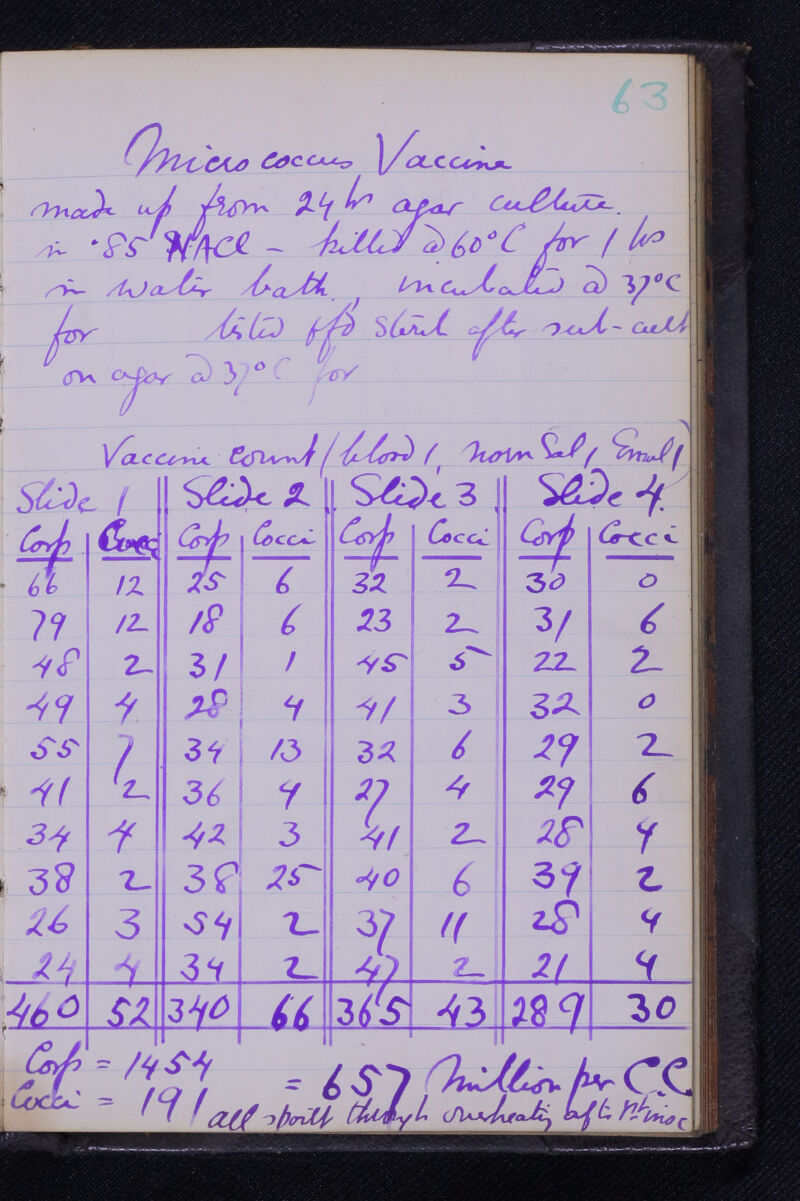 63
Micrococcus Vaccine
made up from 24 hrs agar culture.
in .85 NACl - killed @ 60°C for 1 hrs
in water bath, incubated @ 37°C
for tested sterile after sub-cult
on agar @ 37°C for
Vaccine count (blood 1, norm Sal 1, Emul 1)
Slide 1 Slide 2 Slide 3 Slide 4.
Corp Cocci Corp Cocci Corp Cocci Corp Cocci
66 12 25 6 32 2 30 0
79 12 18 6 23 2 31 6
48 2 31 1 45 5 22 2
49 4 28 4 41 3 32 0
55 7 34 13 32 6 29 2
41 2 36 4 27 4 29 6
34 4 42 3 41 2 28 4
38 2 38 25 40 6 39 2
26 3 54 2 37 11 28 4
24 4 34 2 47 2 21 4
460 52 340 66 365 43 289 30
Corp = 1454
Cocci = 191 = 657 Million per C.C.
all spoilt through overheating after 1st inoc